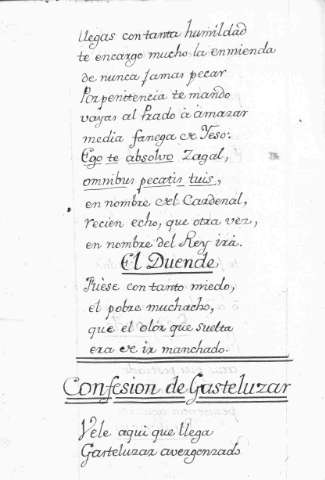 llegas con tanta humildad
te encargo mucho la enmienda
de nunca jamas pecar
Por penitencia te mando
vayas al Prado à amazar
media fanega de Yeso:
Ego te absolvo Zagal,
omnibus pecatis tuis,
en nombre del Cardenal,
recien echo, que otra vez,
en nombre del Rey irà.
El Duende
Fuese con tanto miedo,
el pobre muchacho,
que el olor que suelta
era de ir manchado.
Confesion de Gasteluzar
Vele aqui que llega
Gasteluzar avergonzado